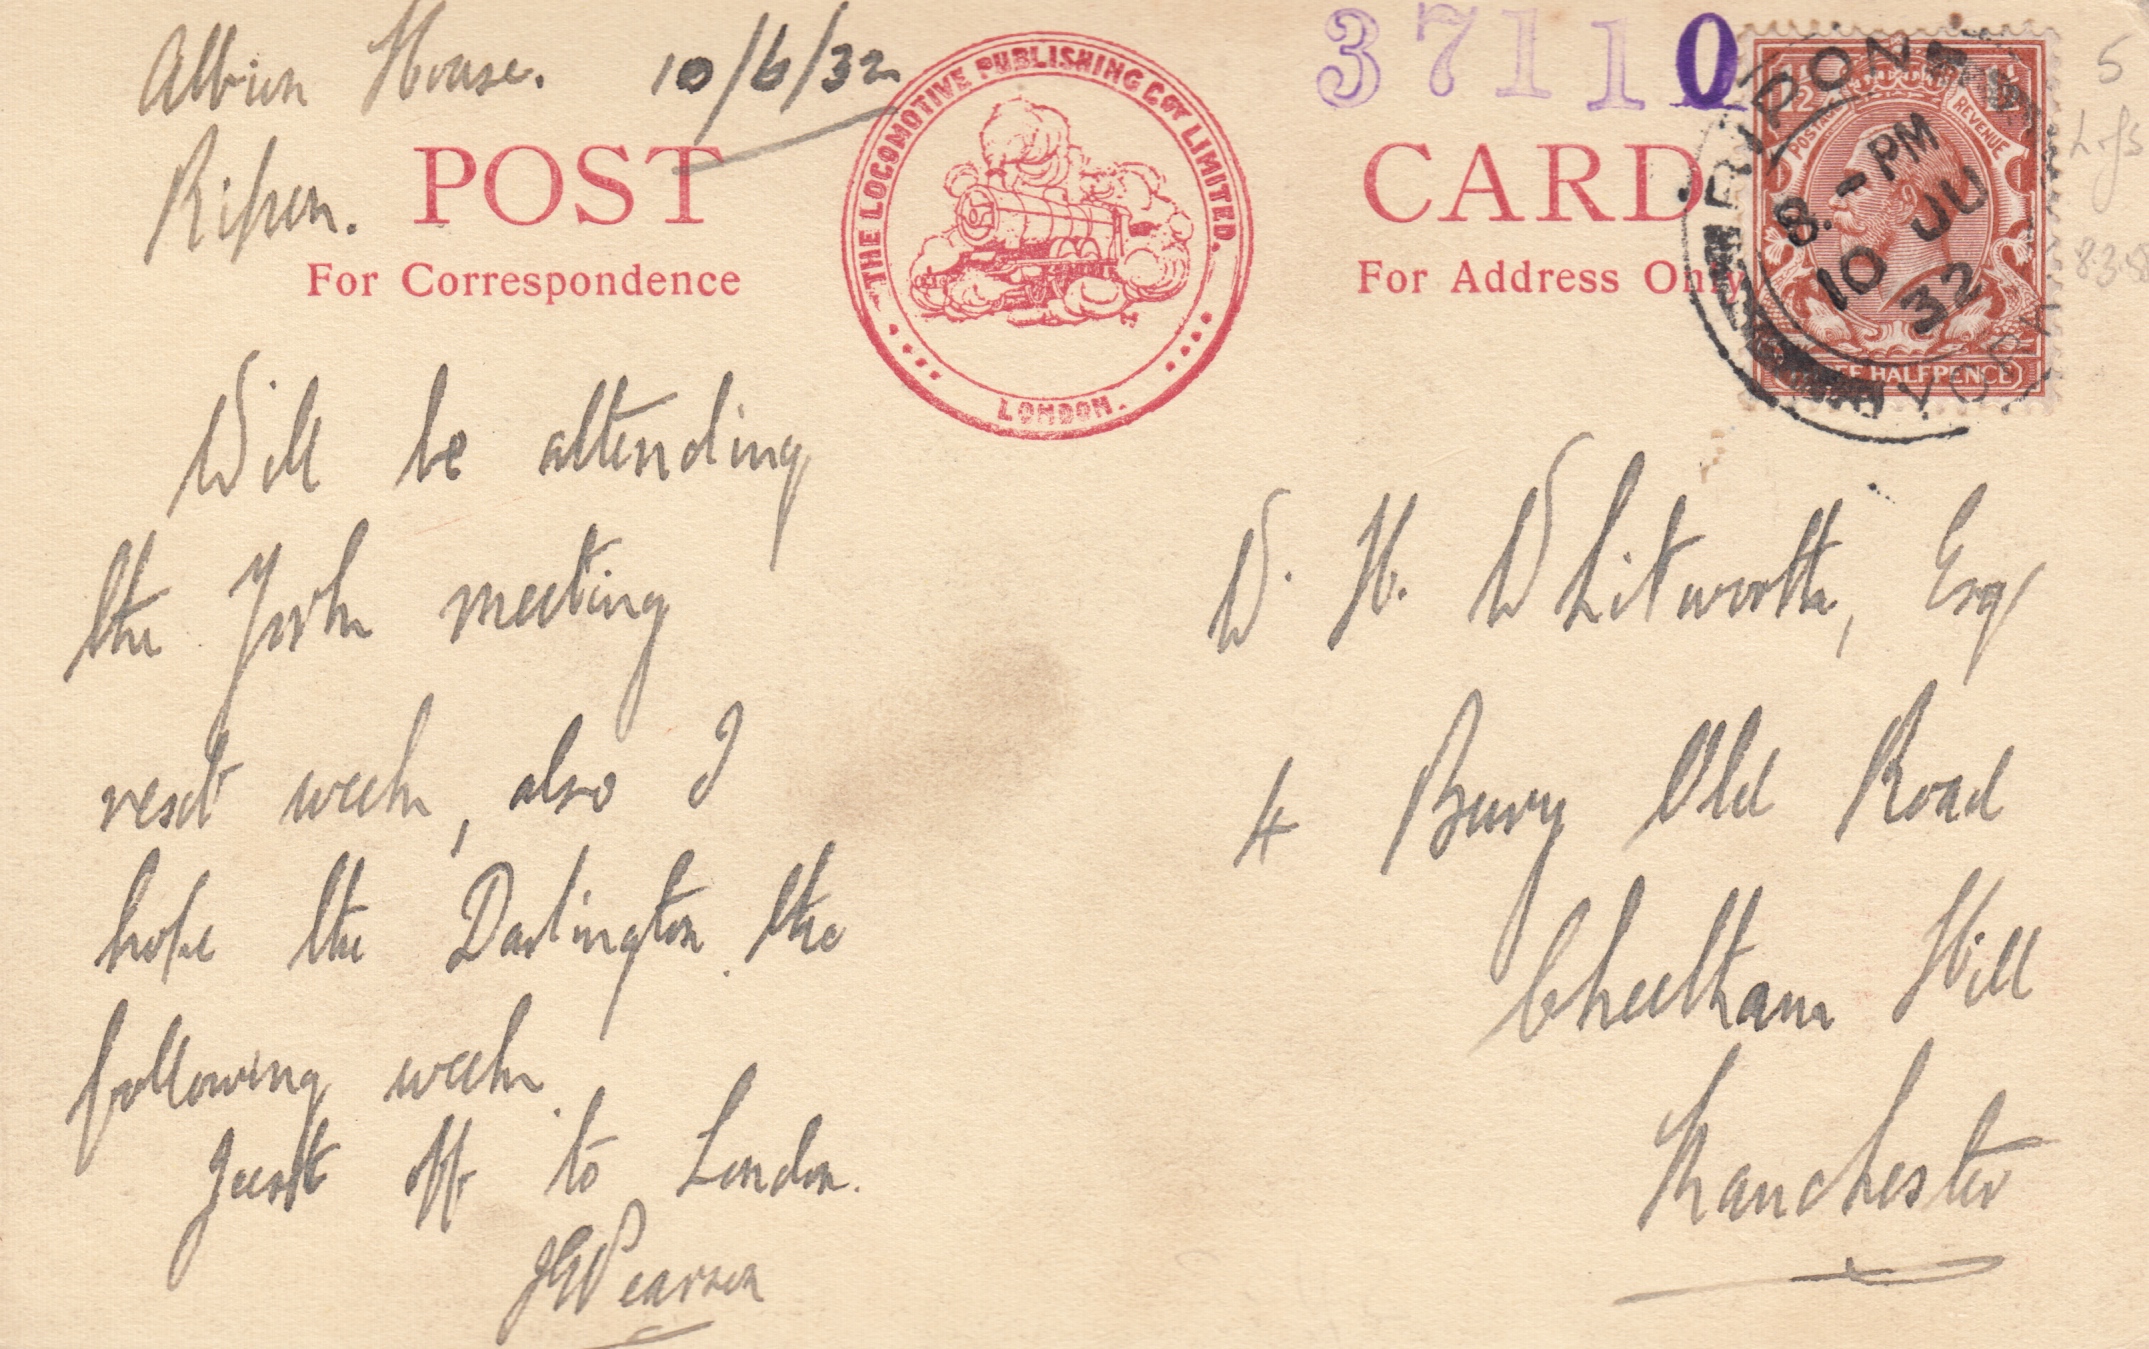 Albion House. 10/6/32
Ripon.
POST CARD
For Correspondence
For Address Only
THE LOCOMOTIVE PUBLISHING COY LIMITED.
LONDON.
37110
RIPON
8.-PM
10 JU
32
YORK
POSTAGE REVENUE
HALFPENCE
5
8.3.
Will be attending
the York meeting
next week, also I
hope the Darlington the
following week.
Just off to London.
JGPearson
W. H. Whitworth, Esq
4 Bury Old Road
Cheetham Hill
Manchester